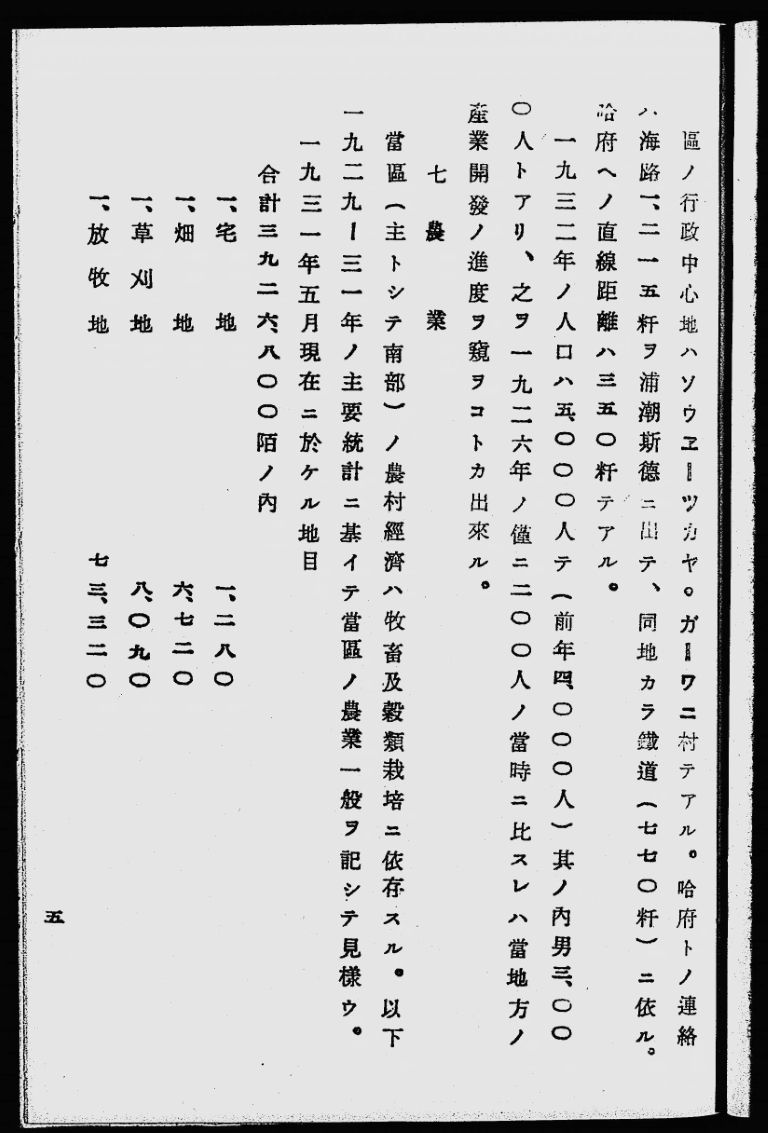 區ノ行政中心地ハソウヱーツカヤ。ガーワニ村テアル。哈府トノ連絡
ハ海路一、二一五粁ヲ浦潮斯德ニ出テ、同地カラ鐵道(七七〇粁)ニ依ル。
哈府ヘノ直線距離ハ三五〇粁テアル。
一九三二年ノ人口ハ五、〇〇〇人テ(前年四、〇〇〇人)其ノ內男三、〇〇
〇人トアリ、之ヲ一九二六年ノ僅ニ二〇〇人ノ當時ニ比スレハ當地方ノ
產業開發ノ進度ヲ窺ヲコトカ出來ル。
七 農業
當區(主トシテ南部)ノ農村經濟ハ牧畜及穀類栽培ニ依存スル。以下
一九二九ー三一年ノ主要統計ニ基イテ當區ノ農業一般ヲ記シテ見樣ウ。
一九三一年五月現在ニ於ケル地目
合計三九二六、八〇〇陌ノ內
一、宅地 一、二八〇
一、畑地 六、七二〇
一、草刈地 八、〇九〇
一、放牧地 七三、三二〇
五